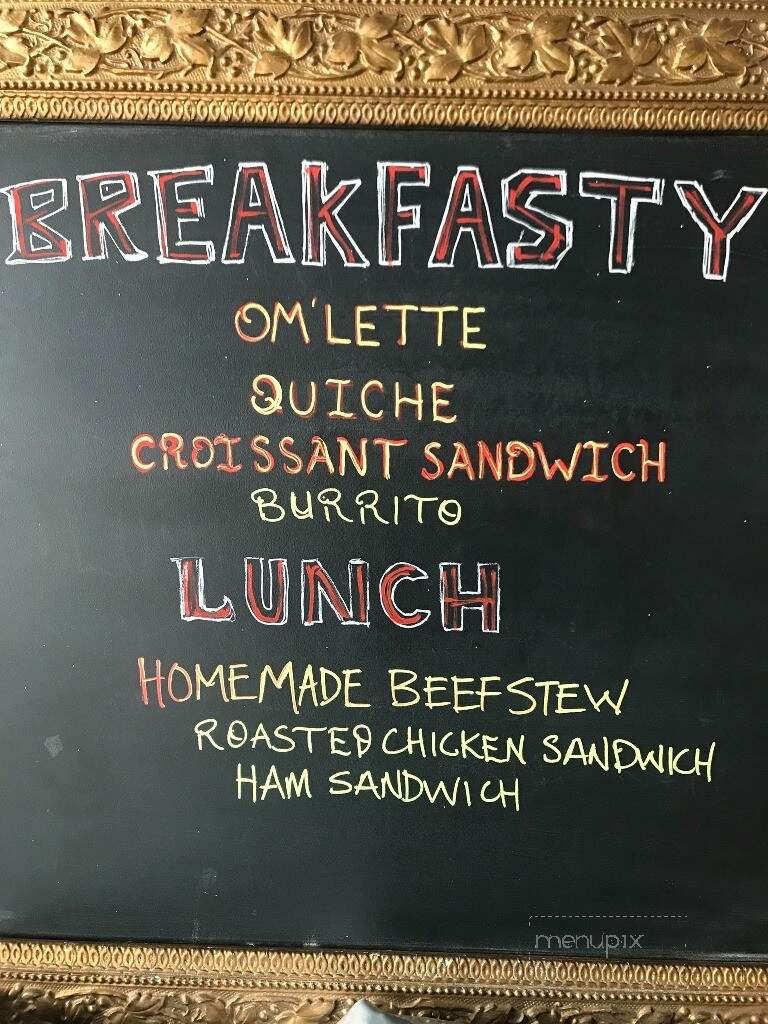 BREAKFASTY
OM'LETTE
QUICHE
CROISSANT SANDWICH
BURRITO
LUNCH
HOMEMADE BEEF STEW
ROASTED CHICKEN SANDWICH
HAM SANDWICH
menupix